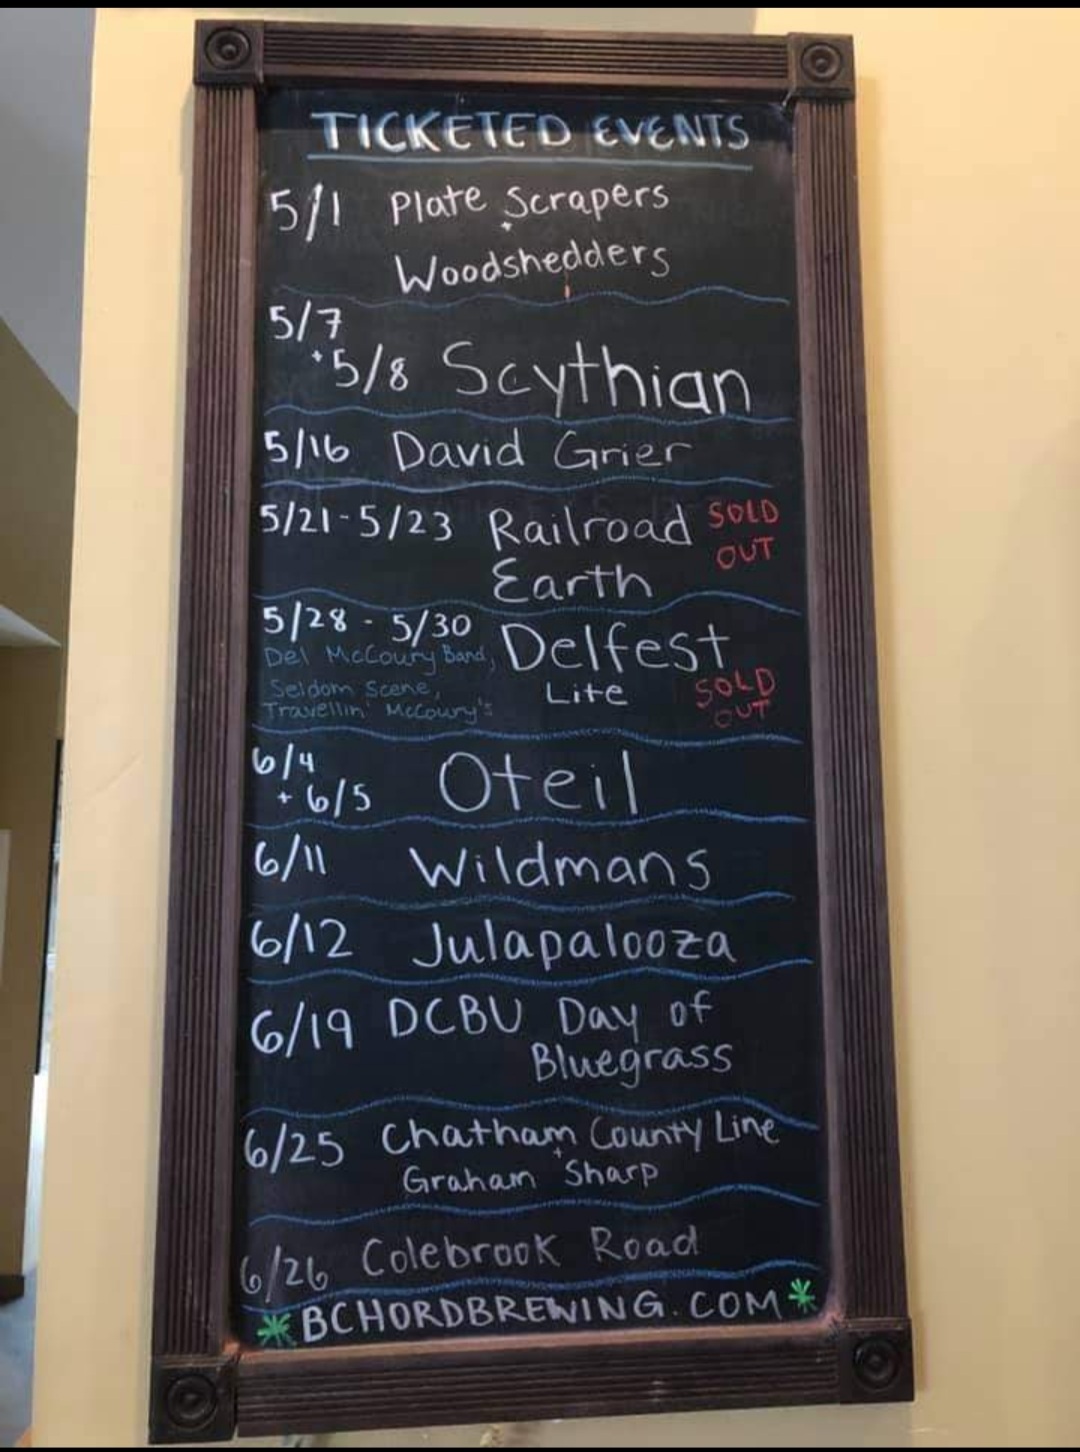 TICKETED EVENTS
5/1 Plate Scrapers
+
Woodshedders
5/7
+5/8 Scythian
5/16 David Grier
5/21-5/23 Railroad SOLD
Earth OUT
5/28 - 5/30 Delfest
Del McCoury Band,
Seldom Scene, Lite SOLD
Travellin' McCoury's OUT
6/4
+ 6/5 Oteil
6/11 Wildmans
6/12 Julapalooza
6/19 DCBU Day of
Bluegrass
6/25 Chatham County Line
+
Graham Sharp
6/26 Colebrook Road
*BCHORDBREWING.COM*